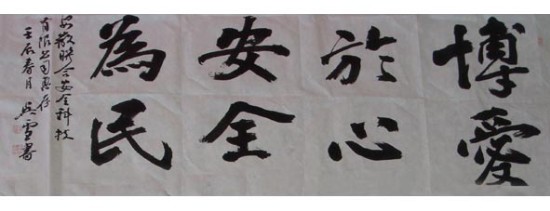 博愛
於心
安全
為民
安徽联合安全科技
有限公司惠存
壬辰春月 吴雪書